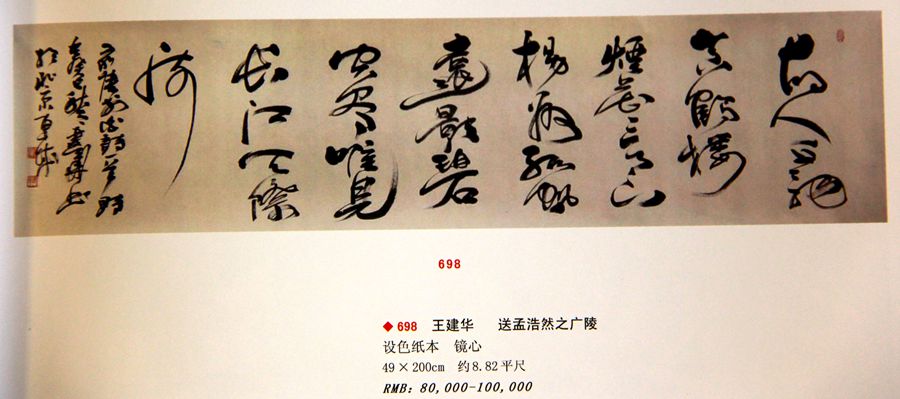 故人西辞
黄鶴楼
煙花三月下
揚州孤帆
遠影碧
空尽唯見
长江天際
流
李白诗一首
於北京
698
◆ 698 王建华 送孟浩然之广陵
设色纸本 镜心
49×200cm 约8.82平尺
RMB: 80,000-100,000